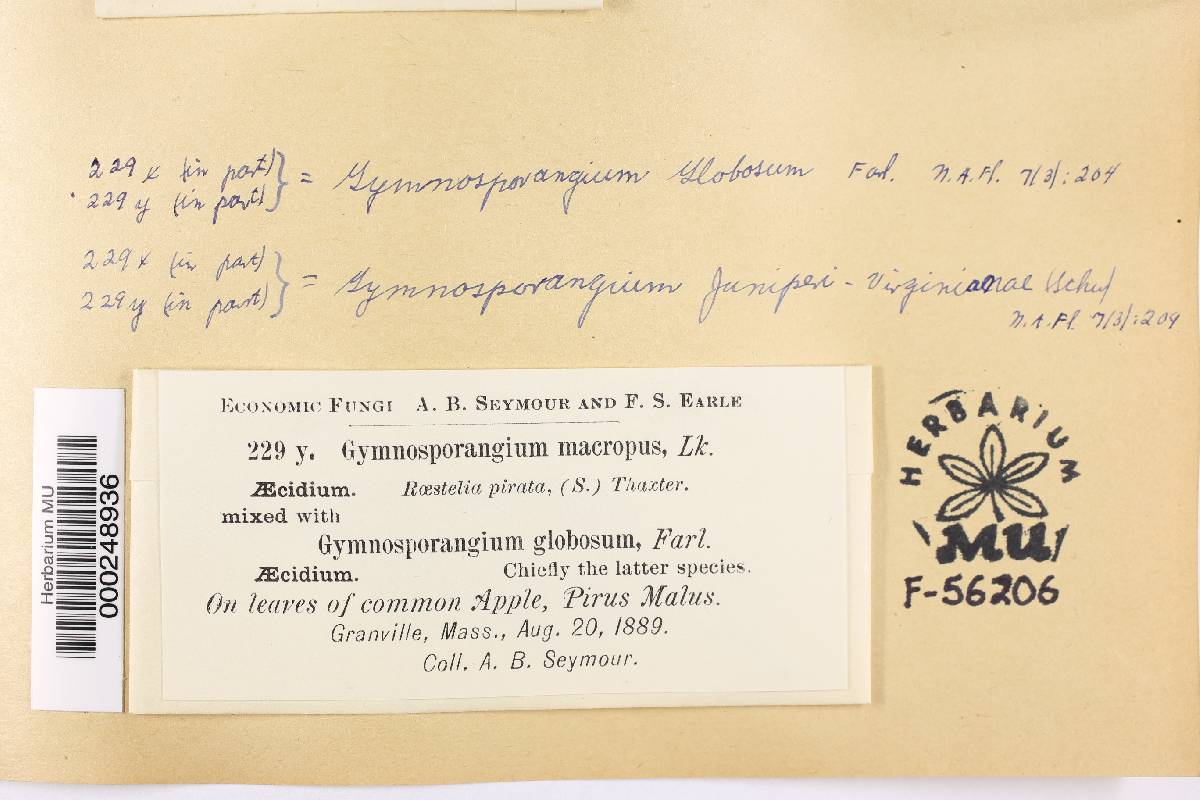 229 x (in part)
229 y (in part) } = Gymnosporangium Globosum Farl. N.A.Fl. 7(3):204
229 x (in part)
229 y (in part) } = Gymnosporangium Juniperi-Virginianae (Schw)
N.A.Fl. 7(3):209
Economic Fungi A. B. Seymour and F. S. Earle
229 y. Gymnosporangium macropus, Lk.
Æcidium. Rœstelia pirata, (S.) Thaxter.
mixed with
Gymnosporangium globosum, Farl.
Æcidium. Chiefly the latter species.
On leaves of common Apple, Pirus Malus.
Granville, Mass., Aug. 20, 1889.
Coll. A. B. Seymour.
Herbarium MU
000248936
HERBARIUM
MU
F-56206